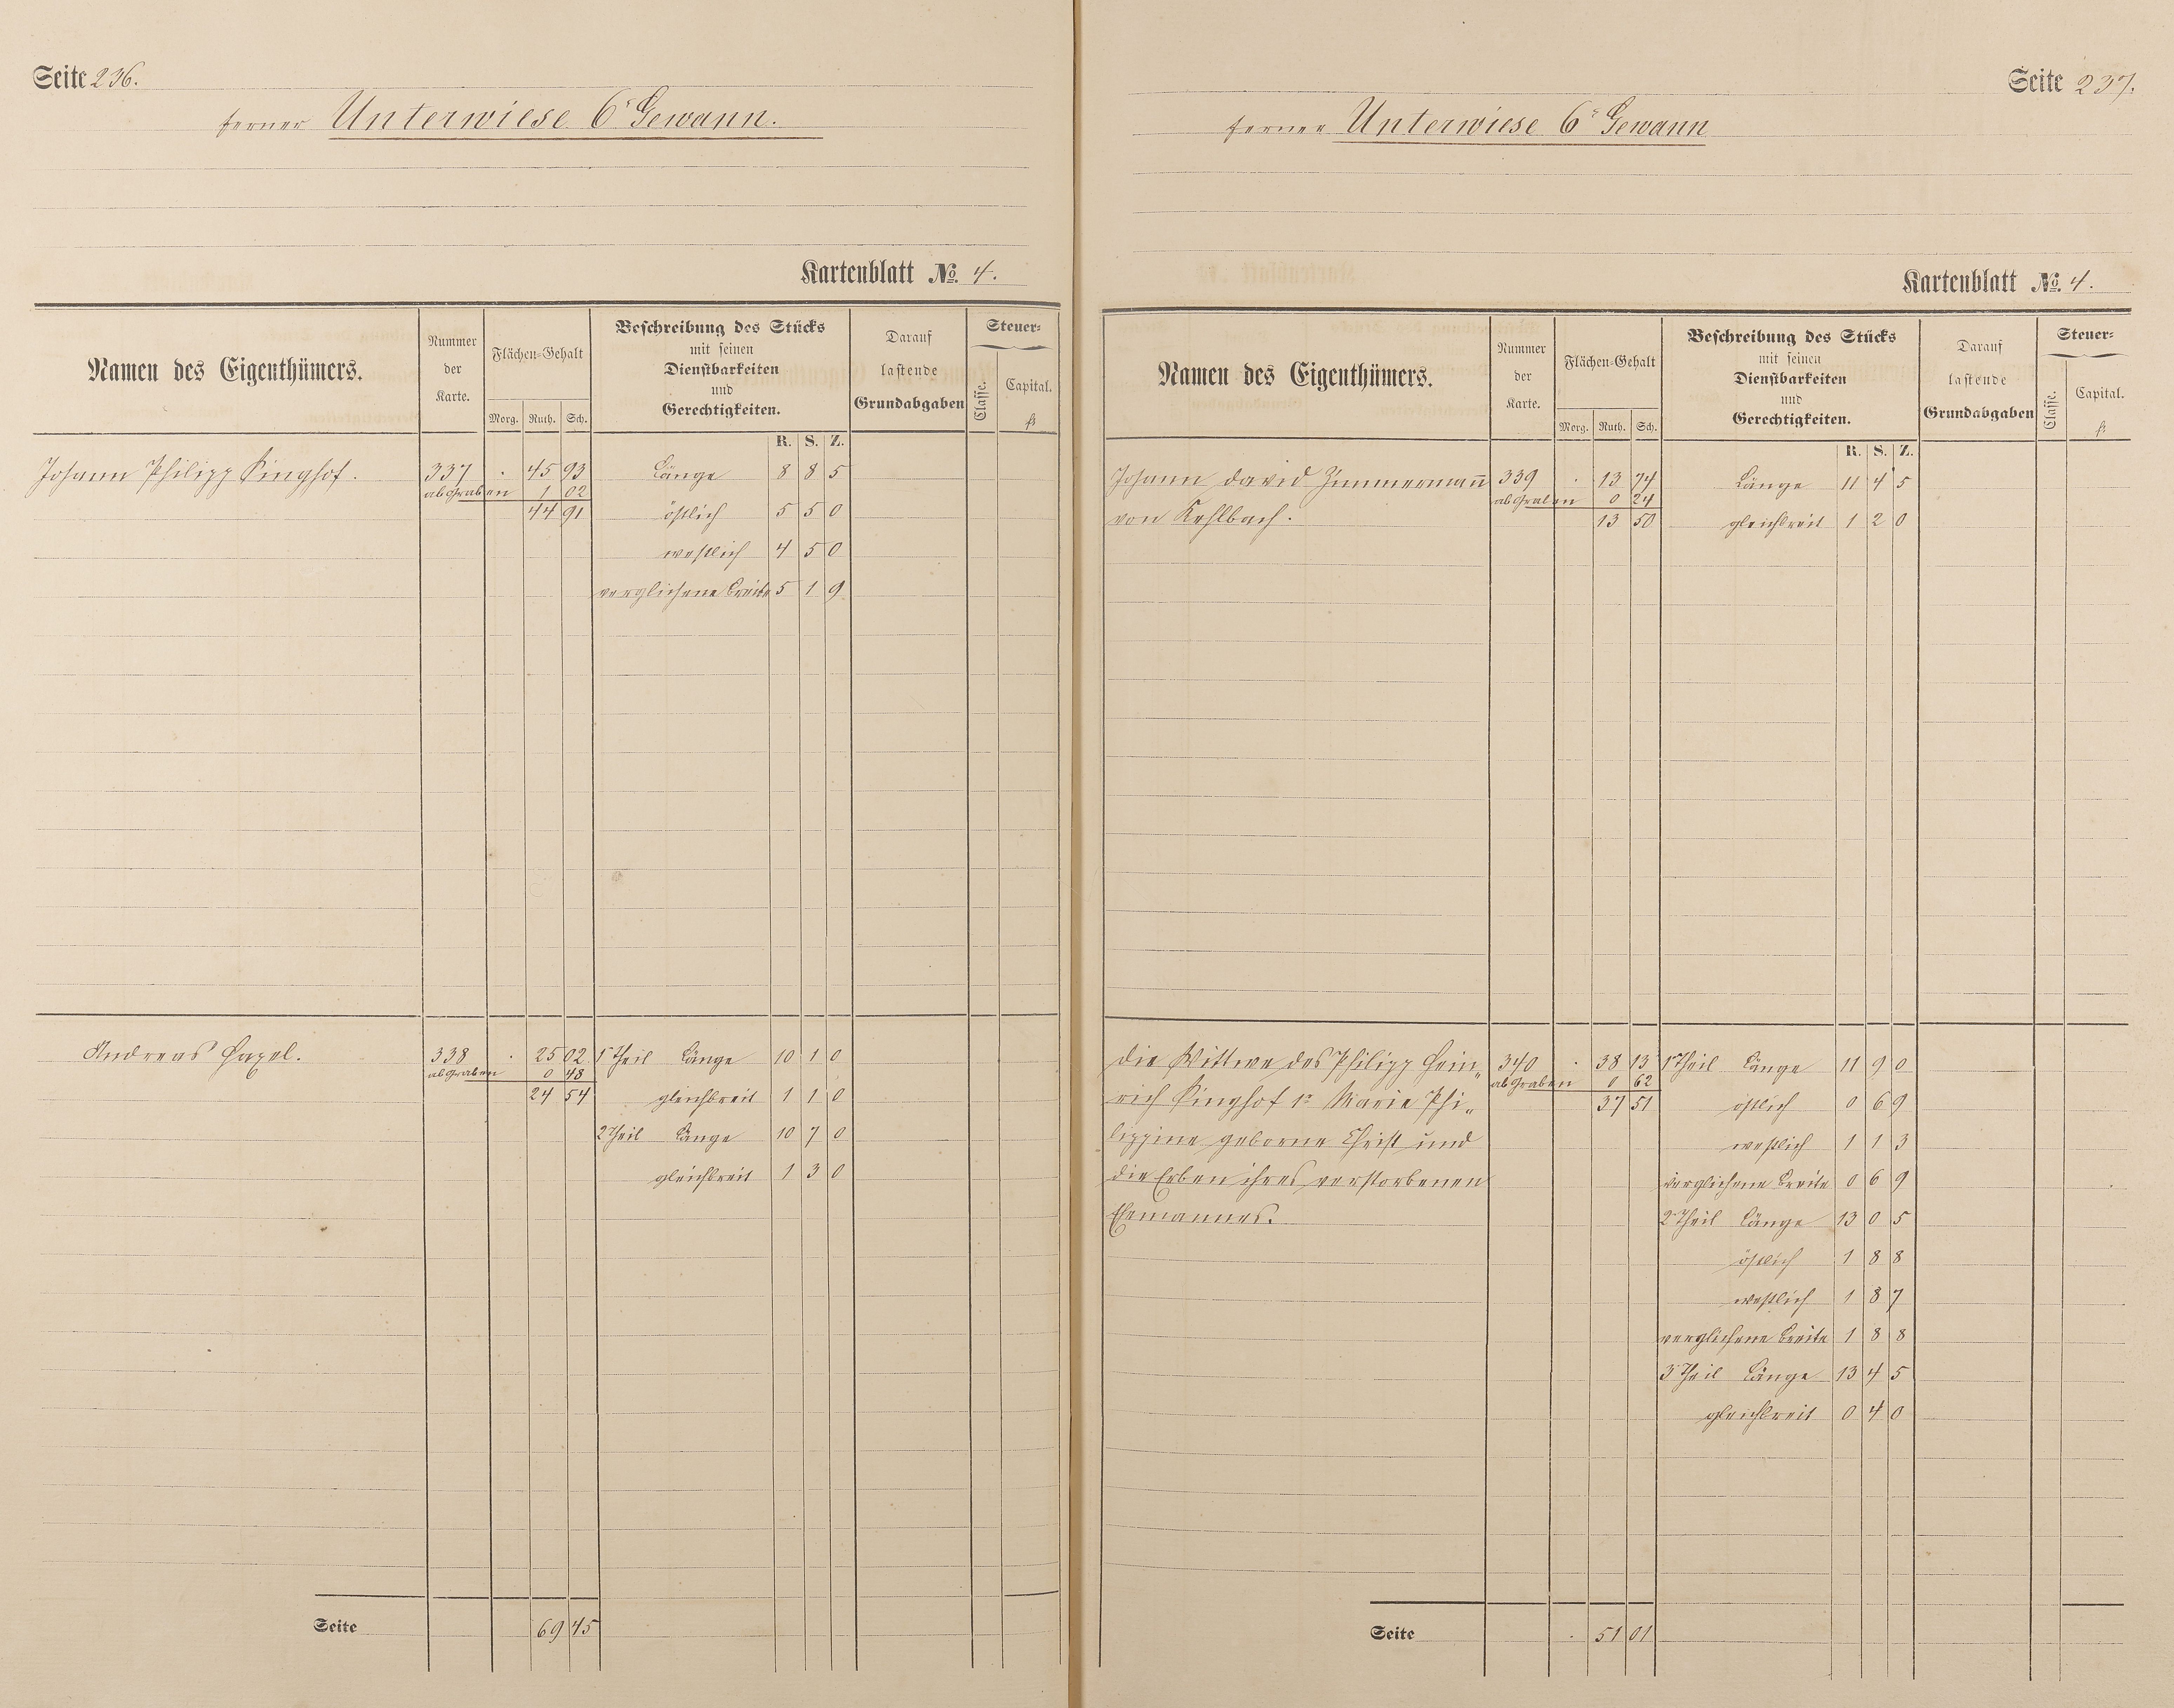 Seite 236.
ferner Unterwiese 6r Gewann.
Kartenblatt No. 4.
Namen des Eigenthümers.
Nummer der Karte.
Flächen-Gehalt
Morg. Ruth. Sch.
Beschreibung des Stücks
mit seinen
Dienstbarkeiten
und
Gerechtigkeiten.
Darauf
lastende
Grundabgaben
Steuer-
Classe.
Capital.
fl.
R. S. Z.
Johann Philipp Kinghof. 337 . 45 93 Länge 8 8 5
ab Graben 1 02
44 91 östlich 5 5 0
westlich 4 5 0
verglichene Breite 5 1 9
Andreas Capel. 338 . 25 02 1r Theil Länge 10 1 0
ab Graben 0 48
24 54 gleichbreit 1 1 0
2r Theil Länge 10 7 0
gleichbreit 1 3 0
Seite 69 45
Seite 237.
ferner Unterwiese 6r Gewann
Kartenblatt No. 4.
Namen des Eigenthümers.
Nummer der Karte.
Flächen-Gehalt
Morg. Ruth. Sch.
Beschreibung des Stücks
mit seinen
Dienstbarkeiten
und
Gerechtigkeiten.
Darauf
lastende
Grundabgaben
Steuer-
Classe.
Capital.
fl.
R. S. Z.
Johann David Zimmermann 339 . 13 74 Länge 11 4 5
ab Graben 0 24
von Kehlbach. 13 50 gleichbreit 1 2 0
Die Wittwe des Philipp Hein- 340 . 38 13 1r Theil Länge 11 9 0
ab Graben 0 62
rich Kinghof 1r Marie Phi- 37 51 östlich 0 6 9
lippine geborne Christ und westlich 1 1 3
die Erben ihres verstorbenen verglichene Breite 0 6 9
Ehemannes. 2r Theil Länge 13 0 5
östlich 1 8 8
westlich 1 8 7
verglichene Breite 1 8 8
3r Theil Länge 13 4 5
gleichbreit 0 4 0
Seite . 51 01